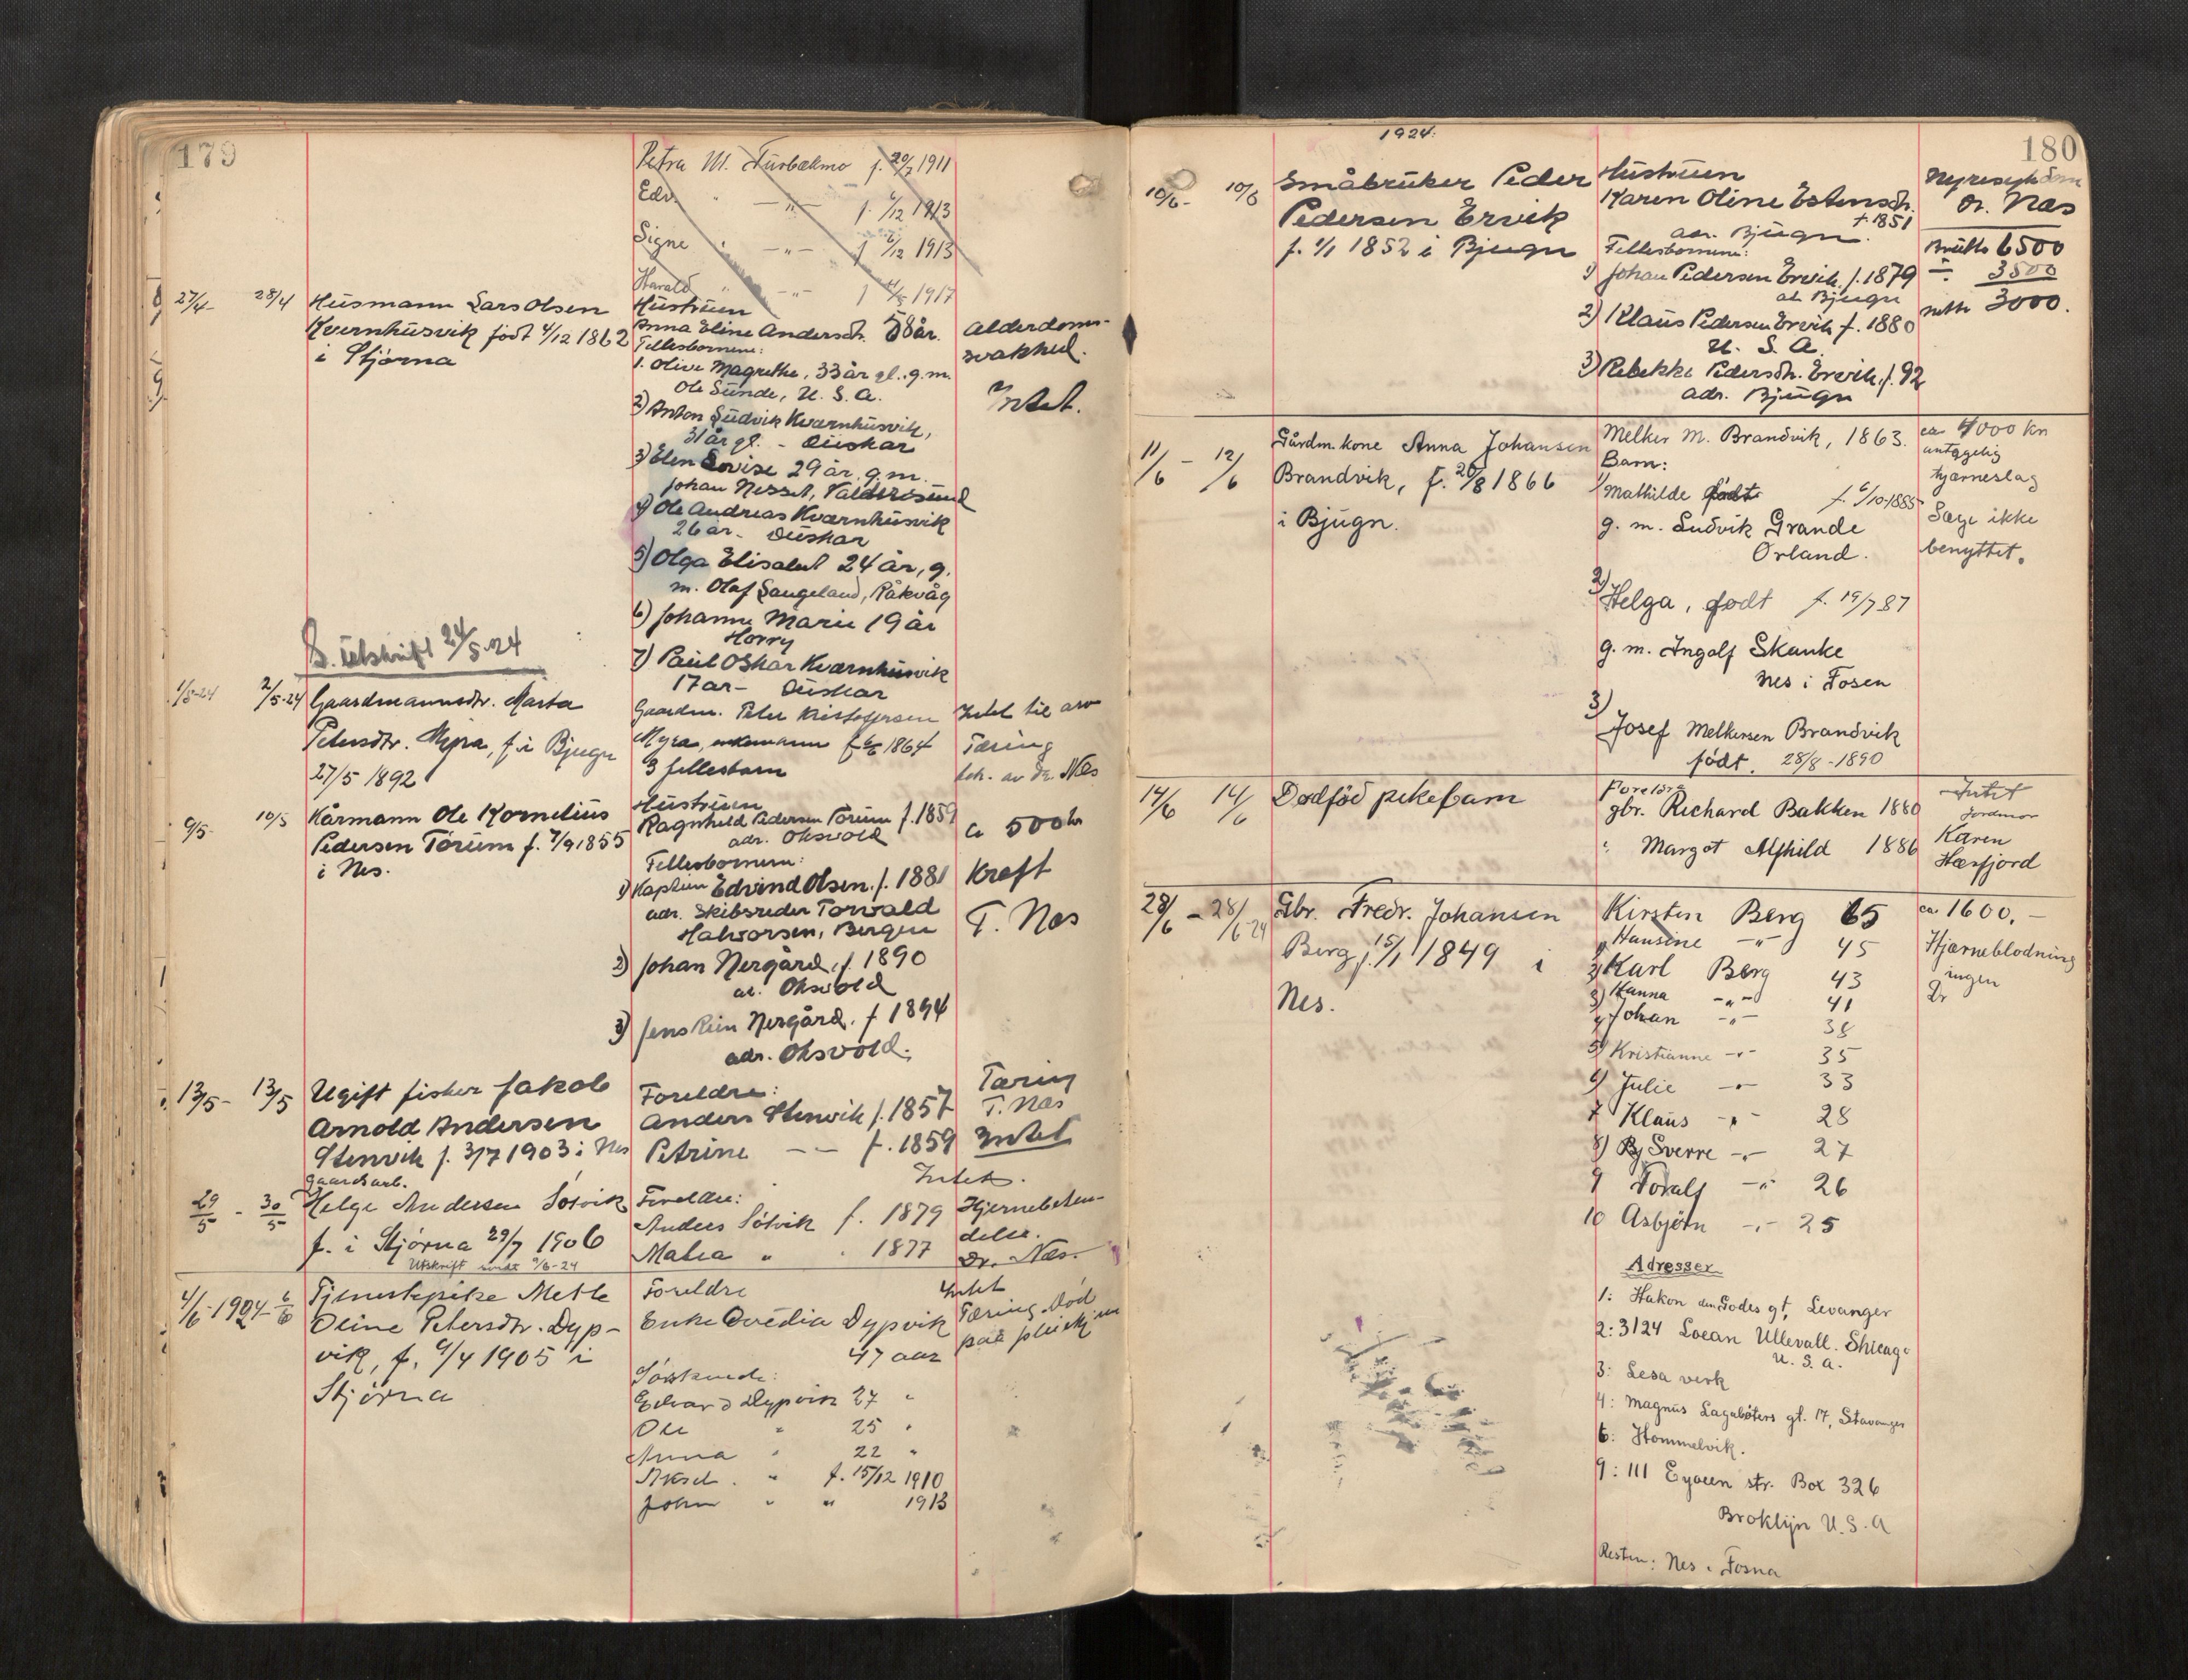 179
Petra M. Turbekmo f. 20/7 1911
Edv. " —"— f. 4/12 1913
Signe " —"— f 4/12 1913
Harald " —"— f 4/5 1917
27/4- 28/4 Husmann Lars Olsen
Kvernhusvik født 4/12 1862
i Stjørna
Hustruen
Anna Eline Andersdt. 58 år.
Fellesbornene:
1. Olive Magrethe, 33 år gl. g. m.
Ole Sunde, U. S. A.
2) Anton Ludvik Kvarnhusvik,
31 år gl. - Duskar
3) Elen Lovise 29 år. g. m.
Johan Nesset, Valdersund
4) Ole Andreas Kvarnhusvik
26 år. Duskar
5) Olga Elisabet 24 år, g.
m. Olaf Laugeland, Råkvåg
6) Johanne Marie 19 år
Horry
7) Paul Oskar Kvarnhusvik
17 år - Duskar
Alderdoms-
svakhed.
Intet.
B. Utskrift 24/5-24
1/5-24 2/5-24 Gaardmannsdtr. Marta
Petersdtr. Myra, f. i Bjugn
27/5 1892
Gaardm. Peter Kristoffersen
Myra, enkemann f. 6/6 1864
3 fellesbarn
Intet til arv
Tæring
beh. av Dr. Næs
9/5- 10/5 Kårmann Ole Kornelius
Pedersen Tørum f. 7/9 1855
i Nes.
Hustruen
Ragnhild Pedersen Tørum f. 1859
adr. Oksvold
Fellesbornene:
1) Kaptein Edvind Olsen f. 1881
adr. Skibsreder Torvald
Halvorsen, Bergen
2) Johan Nergård, f. 1890
ad. Oksvold
3) Jens Rein Nergård. f 1894
adr. Oksvold.
Ca 500 kr
Kreft
T. Næs
13/5- 13/5 Ugift fisker Jakob
Arnold Andersen
Stenvik f. 3/7 1903 i Nes
Foreldre:
Anders Stenvik f. 1857
Petrine — — f. 1859
Tæring
T. Næs
Intet
29/5 - 30/5 gaardsarb.
Helge Andersen Søtvik
f. i Stjørna 29/7 1906
Utskrift sendt 2/6-24
Foreldre:
Anders Søtvik f. 1879
Malea " " 1877
Intet.
Hjernebeten-
delse.
Dr. Næs.
4/6-1924- 6/6 Tjenestepike Mette
Oline Petersdtr. Dyp-
vik, f. 9/4 1905 i
Stjørna
Foreldre
Enke Ovedia Dypvik
47 aar
Søskende:
Edvard Dypvik 27 "
Ole " 25 "
Anna " 22 "
Aksel. " f. 15/12 1910
John " " 1913
Intet
Tæring. Død
1924.
180
10/6- 10/6 Småbruker Peder
Pedersen Ervik
f. 1/1 1852 i Bjugn
Hustruen
Karen Oline Estensdt.
f. 1851
adr. Bjugn.
Fellesbornene:
1) Johan Pedersen Ervik. f. 1879
ad. Bjugn
2) Klaus Pedersen Ervik f. 1880
U. S. A.
3) Rebekka Pedersdt. Ervik. f. 92
adr. Bjugn
Nyresykdom
Dr. Næs
Brutto 6500
÷ 3500
netto 3000.
11/6 - 12/6 Gårdm. kone Anna Johansen
Brandvik, f. 20/8 1866
i Bjugn.
Melker M. Brandvik, 1863.
Barn:
1/ Mathilde født f. 6/10-1885
g. m. Ludvik Grande
Ørland.
2) Helga, født f. 19/7 87
g. m. Ingolf Skanke
Nes i Fosen
3)
Josef Melkersen Brandvik
født. 28/8-1890
ca 4000 kr
antagelig
hjerneslag
Læge ikke
benyttet.
14/6 14/6 Dødfød pikebarn
Foreldre
gbr. Richard Bakken 1880
" Margot Alfhild 1886
Intet
Jordmor
Karen
Hæsfjord
28/6 - 28/6 24 Gbr. Fredr. Johansen
Berg f. 15/1 1849 i
Nes.
Kirsten Berg 65
1) Hansine —"— 45
2) Karl Berg 43
3) Hanna —"— 41
4) Johan —"— 38
5) Kristianne —"— 35
6) Julie —"— 33
7 Klaus —"— 28
8) Sverre —"— 27
9 Toralf —"— 26
10 Asbjørn —"— 25
ca 1600,—
Hjerneblødning
ingen
Dr
Adresser
1: Håkon den Godes gt, Levanger
2: 3124 Locan Ullevall. Shicago
U. S. A.
3: Lesa verk
4: Magnus Lagabøters gt. 17, Stavanger
6: Hommelvik.
9: 111 str. Box 326
Broklijn U. S. A
Resten: Nes i Fosna